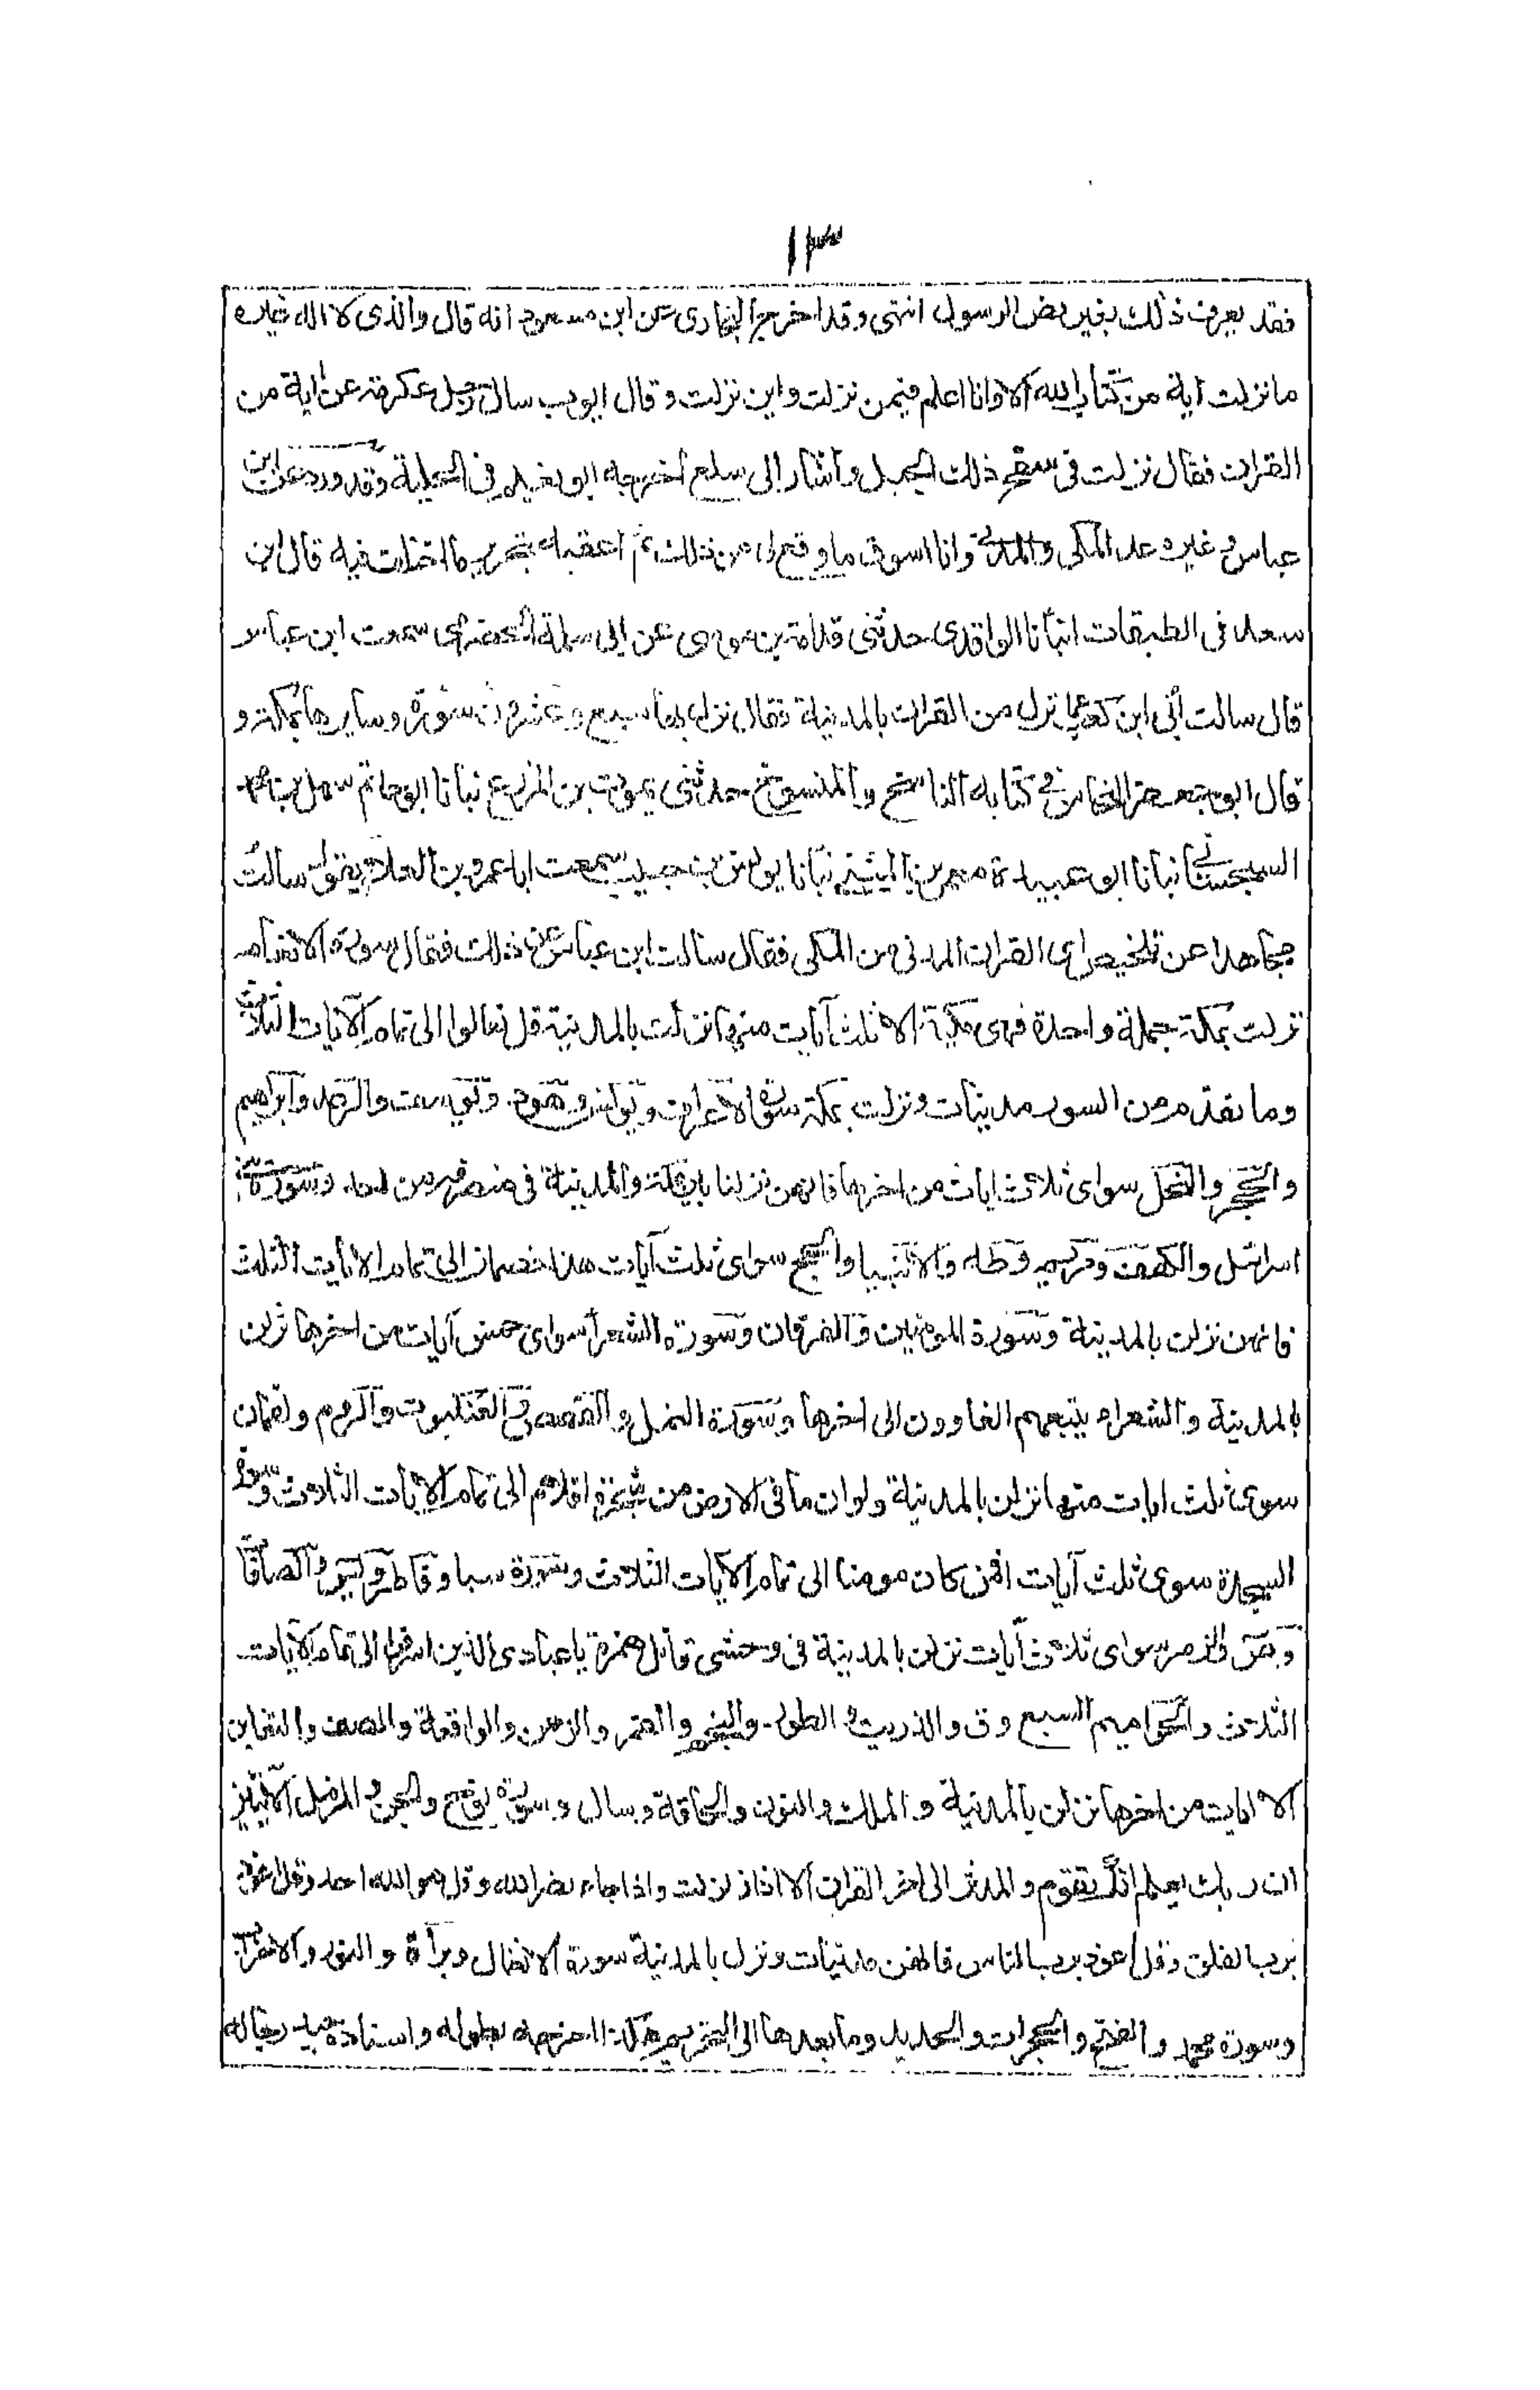 ١٣
فقد يعرف ذلك بغير نص الرسول انتهى وقد اخرج البخارى عن ابن مسعود انه قال والذى لا اله غيره
ما نزلت آية من كتاب الله الا وانا اعلم فيمن نزلت واين نزلت وقال ايوب سال رجل عكرمة عن اية من
القران فقال نزلت فى سفح ذلك الجبل واشار الى سلع اخرجه ابو نعيم فى الحلية وقد ورد عن ابن
عباس وغيره عد المكى والمدنى وانا اسوق ما وقع لى من ذلك ثم اعقبه بتحرير ما اختلف فيه قال ابن
سعد فى الطبقات انبأنا الواقدى حدثنى قدامة بن موسى عن ابى سلمة الحضرمى سمعت ابن عباس
قال سالت أبى ابن كعب عما نزل من القران بالمدينة فقال نزل بها سبع وعشرون سورة وسايرها بمكة و
قال ابو جعفر النحاس فى كتابه الناسخ والمنسوخ حدثنى يموت بن المزرع نبأنا ابو حاتم سهل بن محمد
السجستانى نبأنا ابو عبيدة معمر بن المثنى نبأنا يونس بن حبيب سمعت ابا عمرو بن العلاء يقول سالت
مجاهدا عن تلخيص اى القران المدنى من المكى فقال سالت ابن عباس عن ذلك فقال سورة الانعام
نزلت بمكة جملة واحدة فهى مكية الا ثلث آيات منها نزلت بالمدينة قل تعالوا الى تمام الآيات الثلاث
وما تقدم من السور مدنيات ونزلت بمكة سورة الاعراف ويونس وهود ويوسف والرعد وابراهيم
والحجر والنحل سواى ثلاث ايات من اخرها فانهن نزلنا بين مكة والمدينة فى منصرفه من احد وسورة بنى
اسرائيل والكهف ومريم وطه والانبيا والحج سواى ثلث آيات هذان خصمان الى تمام الايات الثلث
فانهن نزلن بالمدينة وسورة المومنين والفرقان وسورة الشعرأ سواى خمس آيات من اخرها نزلن
بالمدينة والشعراء يتبعهم الغاوون الى اخرها وسورة النمل والقصص والعنكبوت والروم ولقمان
سوى ثلث ايات منها نزلن بالمدينة ولو ان ما فى الارض من شجرة اقلام الى تمام الايات الثلاث وسورة
السجدة سوى ثلث آيات افمن كان مومنا الى تمام الآيات الثلاث وسورة سبا وفاطر ويس والصافات
وص والزمر سواى ثلاث آيات نزلن بالمدينة فى وحشى قاتل حمزة يا عبادى الذين اسرفوا الى تمام الآيات
الثلاث والحواميم السبع وق والذريت والطور والنجم والقمر والرحمن والواقعة والصف والتغابن
الا ايات من اخرها نزلن بالمدينة والملك والنون والحاقة وسال وسورة نوح والجن والمزمل الا آيتين
ان ربك يعلم انك تقوم والمدثر الى اخر القران الا اذا زلزلت واذا جاء نصر الله وقل هو الله احد وقل اعوذ
برب الفلق وقل اعوذ برب الناس فانهن مدنيات ونزل بالمدينة سورة الانفال وبرآة والنور والاحزاب
وسورة محمد والفتح والحجرات والحديد وما بعدها الى التحريم هكذا اخرجه بطوله واسناده جيد رجاله